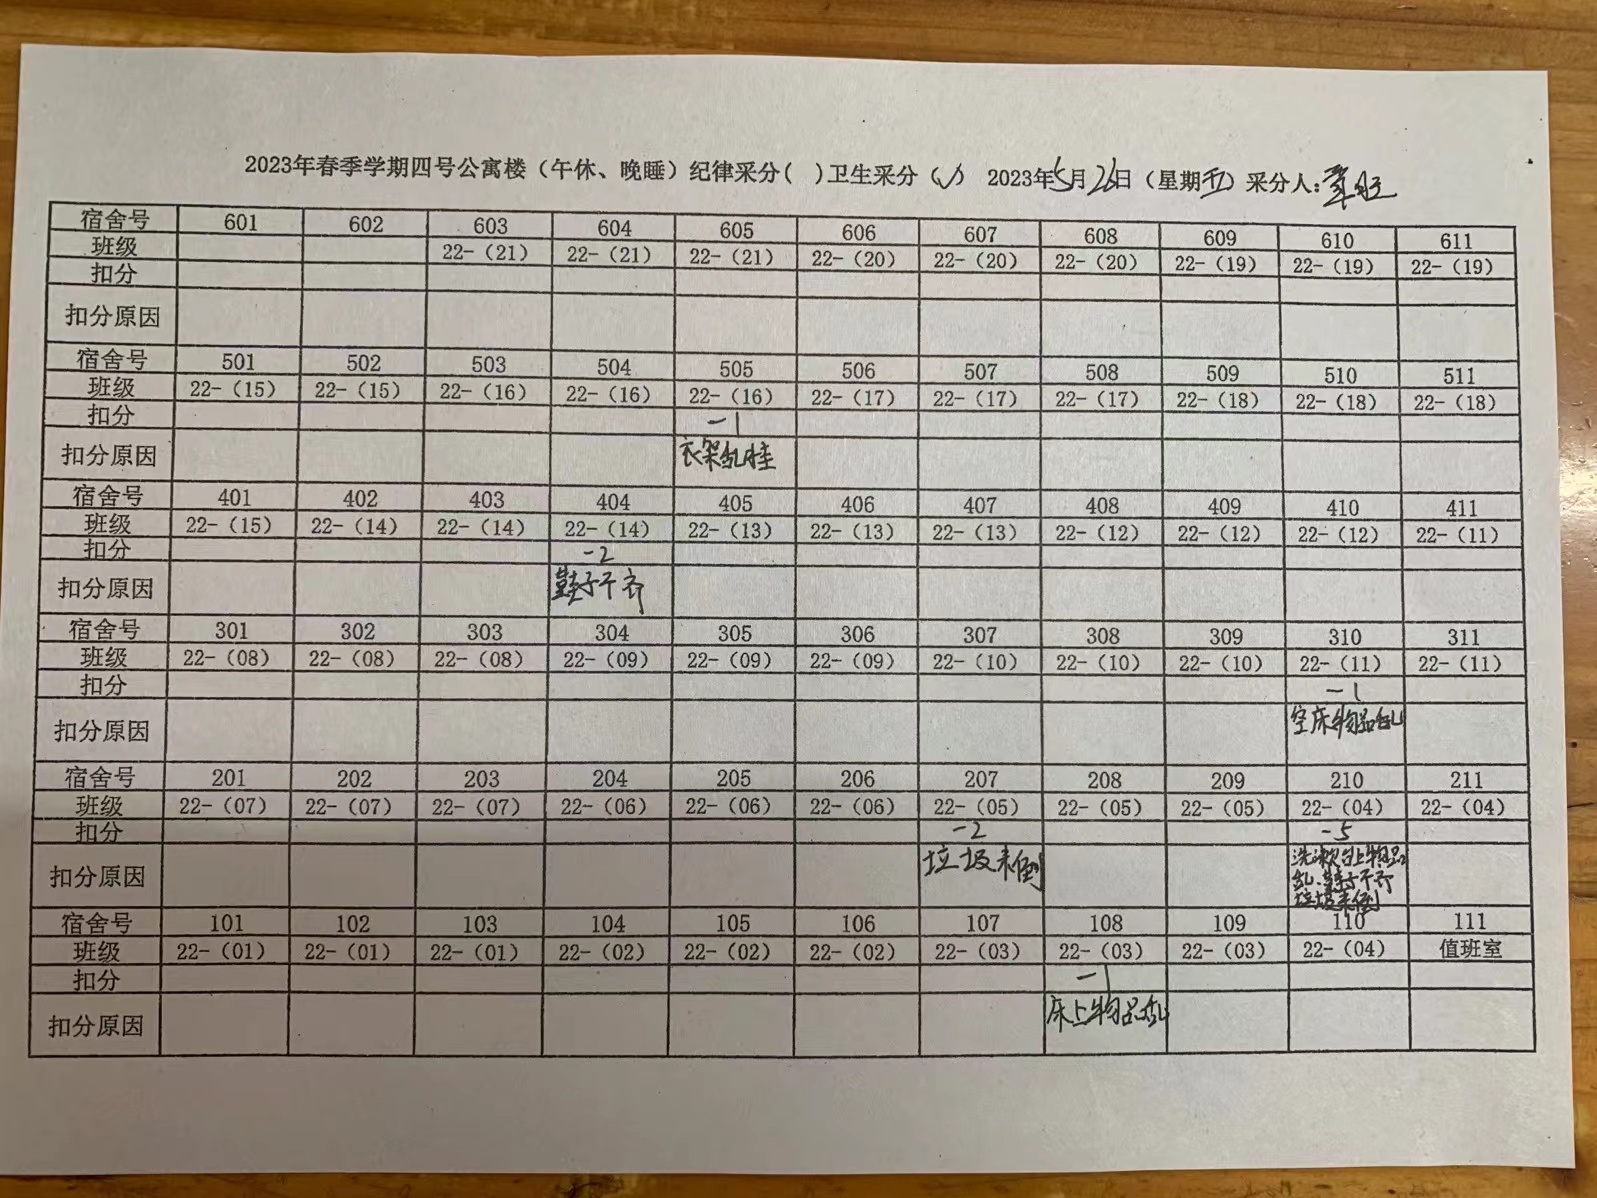 2023年春季学期四号公寓楼（午休、晚睡）纪律采分( )卫生采分（√） 2023年5月26日（星期五）采分人:
宿舍号 601 602 603 604 605 606 607 608 609 610 611
班级 22-（21） 22-（21） 22-（21） 22-（20） 22-（20） 22-（20） 22-（19） 22-（19） 22-（19）
扣分
扣分原因
宿舍号 501 502 503 504 505 506 507 508 509 510 511
班级 22-（15） 22-（15） 22-（16） 22-（16） 22-（16） 22-（17） 22-（17） 22-（17） 22-（18） 22-（18） 22-（18）
扣分 -1
扣分原因 衣架乱挂
宿舍号 401 402 403 404 405 406 407 408 409 410 411
班级 22-（15） 22-（14） 22-（14） 22-（14） 22-（13） 22-（13） 22-（13） 22-（12） 22-（12） 22-（12） 22-（11）
扣分 -2
扣分原因 鞋子不齐
宿舍号 301 302 303 304 305 306 307 308 309 310 311
班级 22-（08） 22-（08） 22-（08） 22-（09） 22-（09） 22-（09） 22-（10） 22-（10） 22-（10） 22-（11） 22-（11）
扣分 -1
扣分原因 空床物品乱
宿舍号 201 202 203 204 205 206 207 208 209 210 211
班级 22-（07） 22-（07） 22-（07） 22-（06） 22-（06） 22-（06） 22-（05） 22-（05） 22-（05） 22-（04） 22-（04）
扣分 -2 -5
扣分原因 垃圾未倒 洗漱台上物品
乱、鞋子不齐
垃圾未倒
宿舍号 101 102 103 104 105 106 107 108 109 110 111
班级 22-（01） 22-（01） 22-（01） 22-（02） 22-（02） 22-（02） 22-（03） 22-（03） 22-（03） 22-（04） 值班室
扣分 -1
扣分原因 床上物品乱